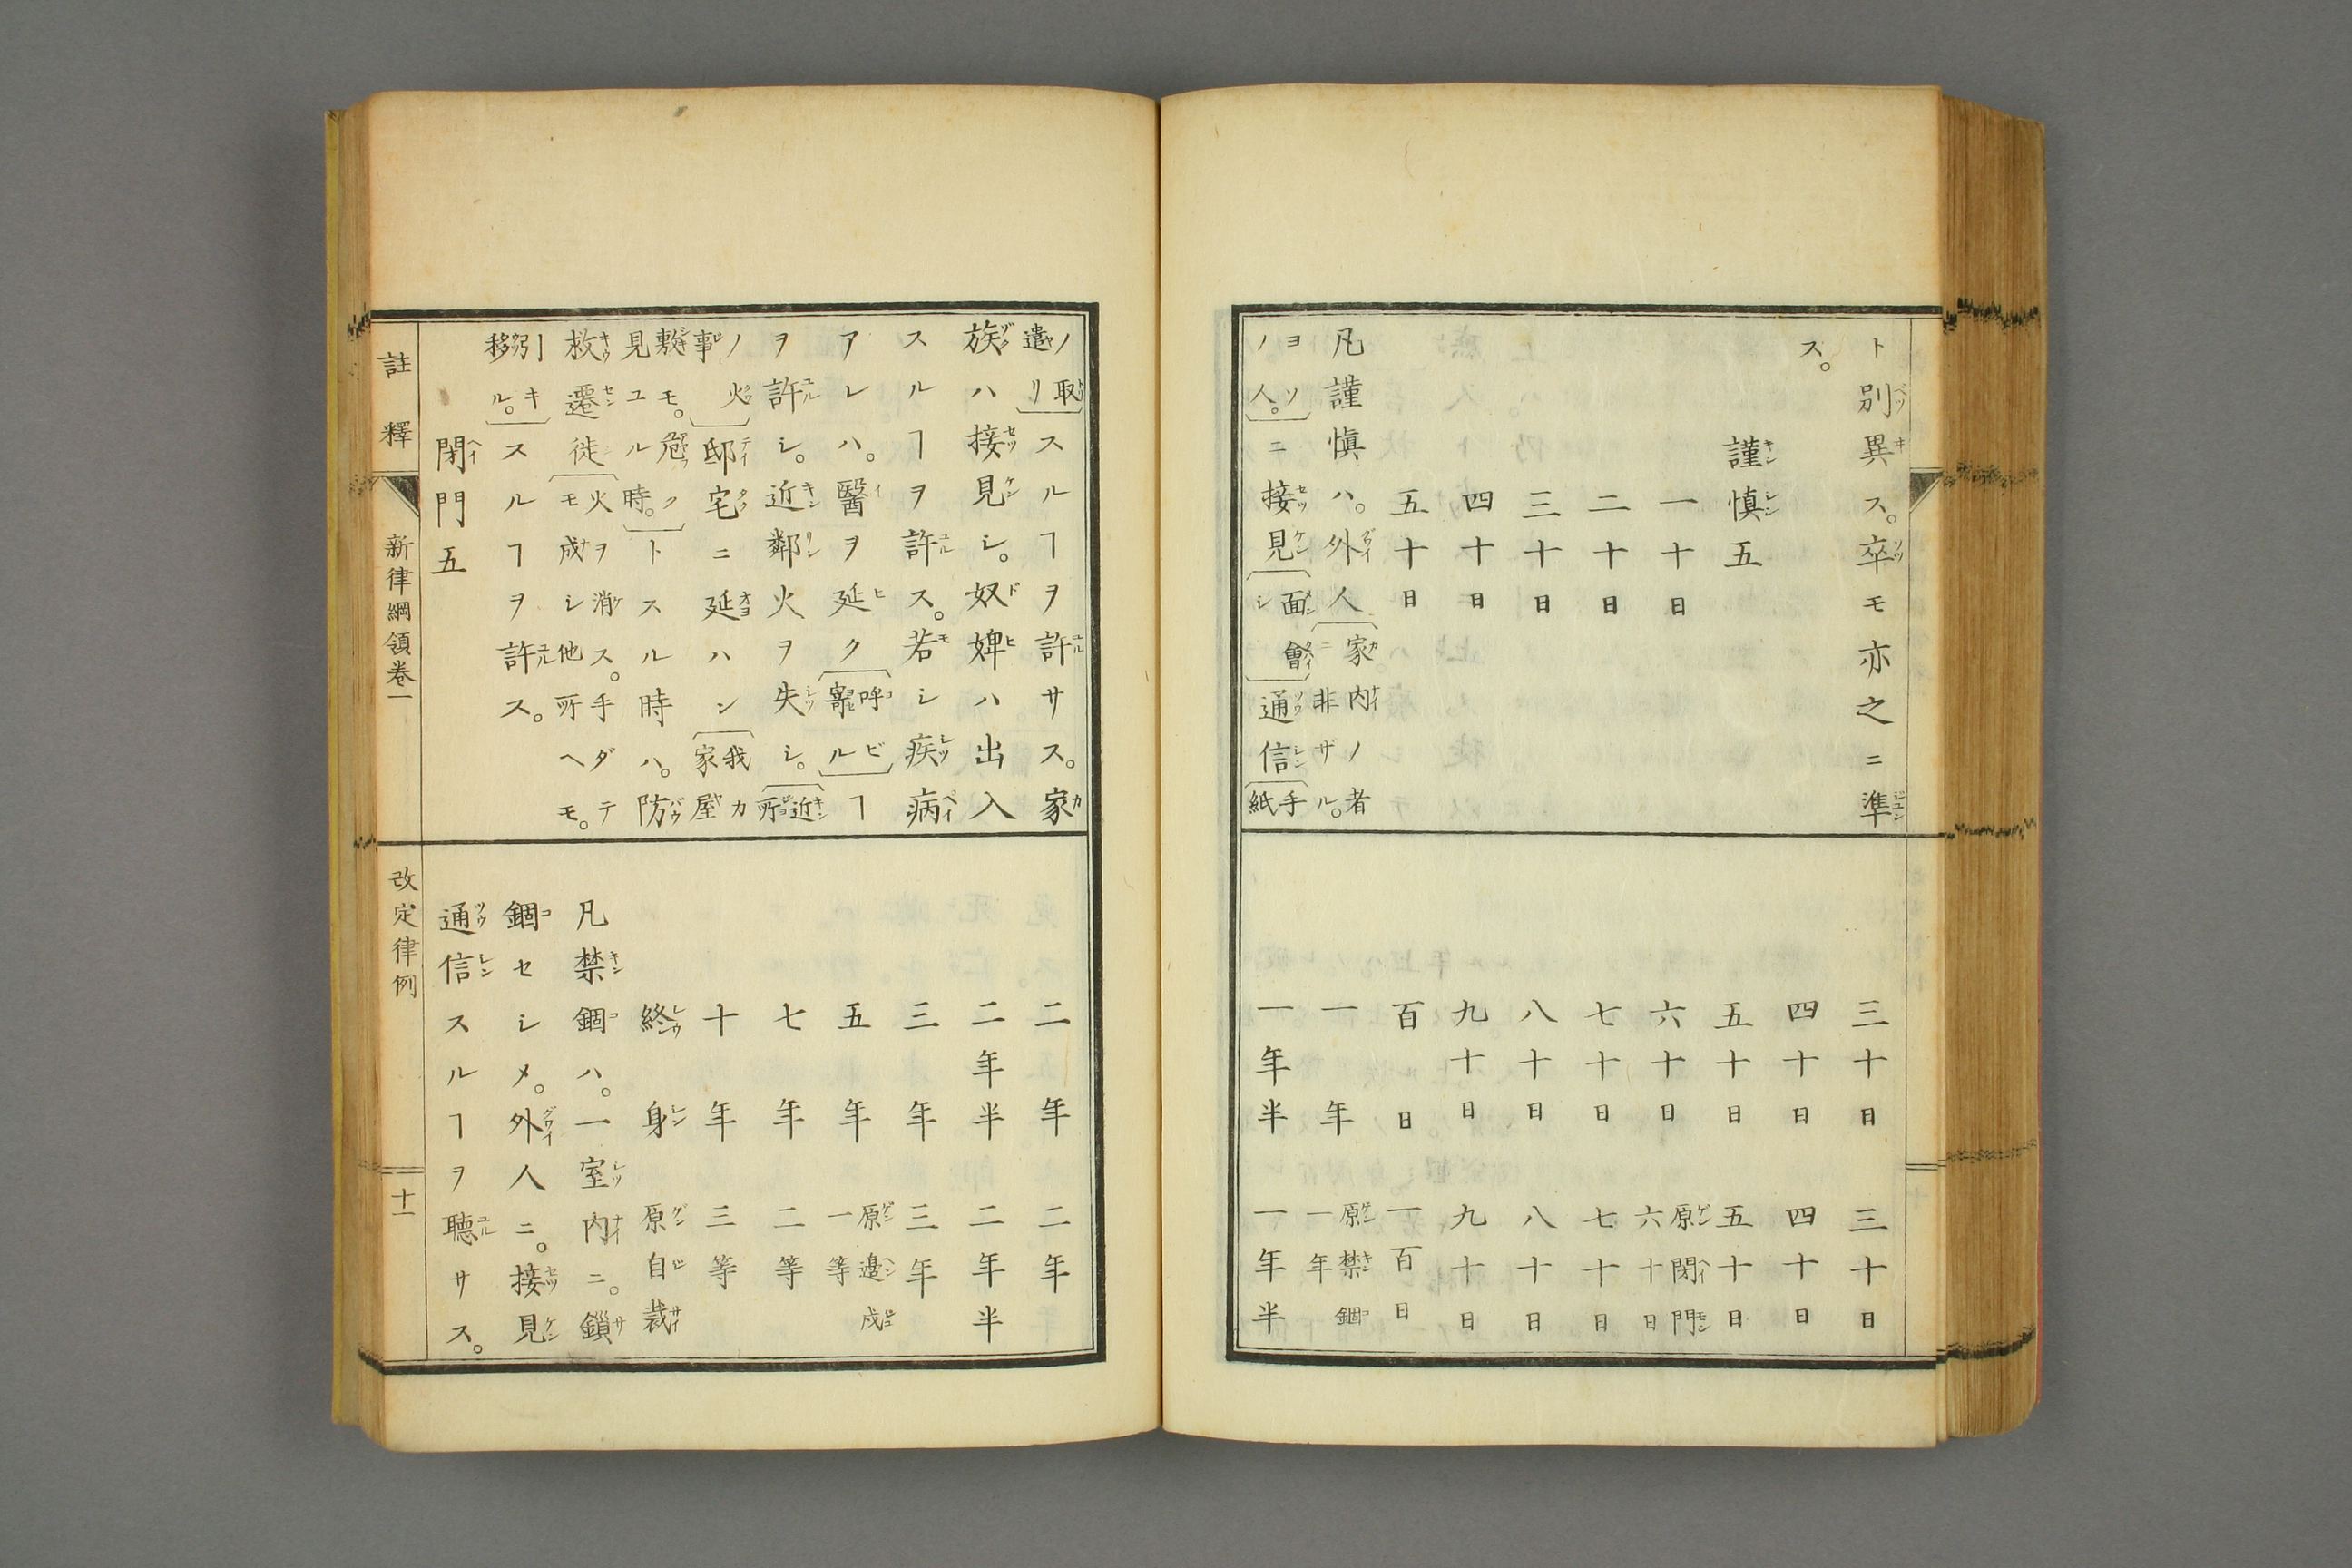 ト別異ス。卒モ亦之ニ準
ス。
謹慎五
一十日
二十日
三十日
四十日
五十日
凡謹慎ハ。外人〔家内ノ者ニ非ザル。
ヨソノ人。〕ニ接見〔面會シ〕通信〔手紙
三十日 三十日
四十日 四十日
五十日 五十日
六十日 原閉門六十日
七十日 七十日
八十日 八十日
九十日 九十日
百日 一百日
一年 原禁錮一年
一年半 一年半
註釋 新律綱領卷一 改定律例 十一
ノ取遣リ〕スルヿヲ許サス。家
族ハ接見シ。奴婢ハ出入
スルヿヲ許ス。若シ疾病
アレハ。醫ヲ延ク〔呼ビ寄ル〕ヿ
ヲ許シ。近鄰火ヲ失シ。〔近所
ノ火事〕邸宅ニ延ハン〔我カ家屋
敷モ。危ク見ユル時。〕トスル時ハ。防
救遷徙〔火ヲ消ス。手ダテモ成シ他所ヘモ。
引キ移ル。〕スルヿヲ許ス。
閉門五
二年 二年
二年半 二年半
三年 三年
五年 原邊戍一等
七年 二等
十年 三等
終身 原自裁
凡禁錮ハ。一室内ニ。鎖
錮セシメ。外人ニ。接見
通信スルヿヲ聽サス。